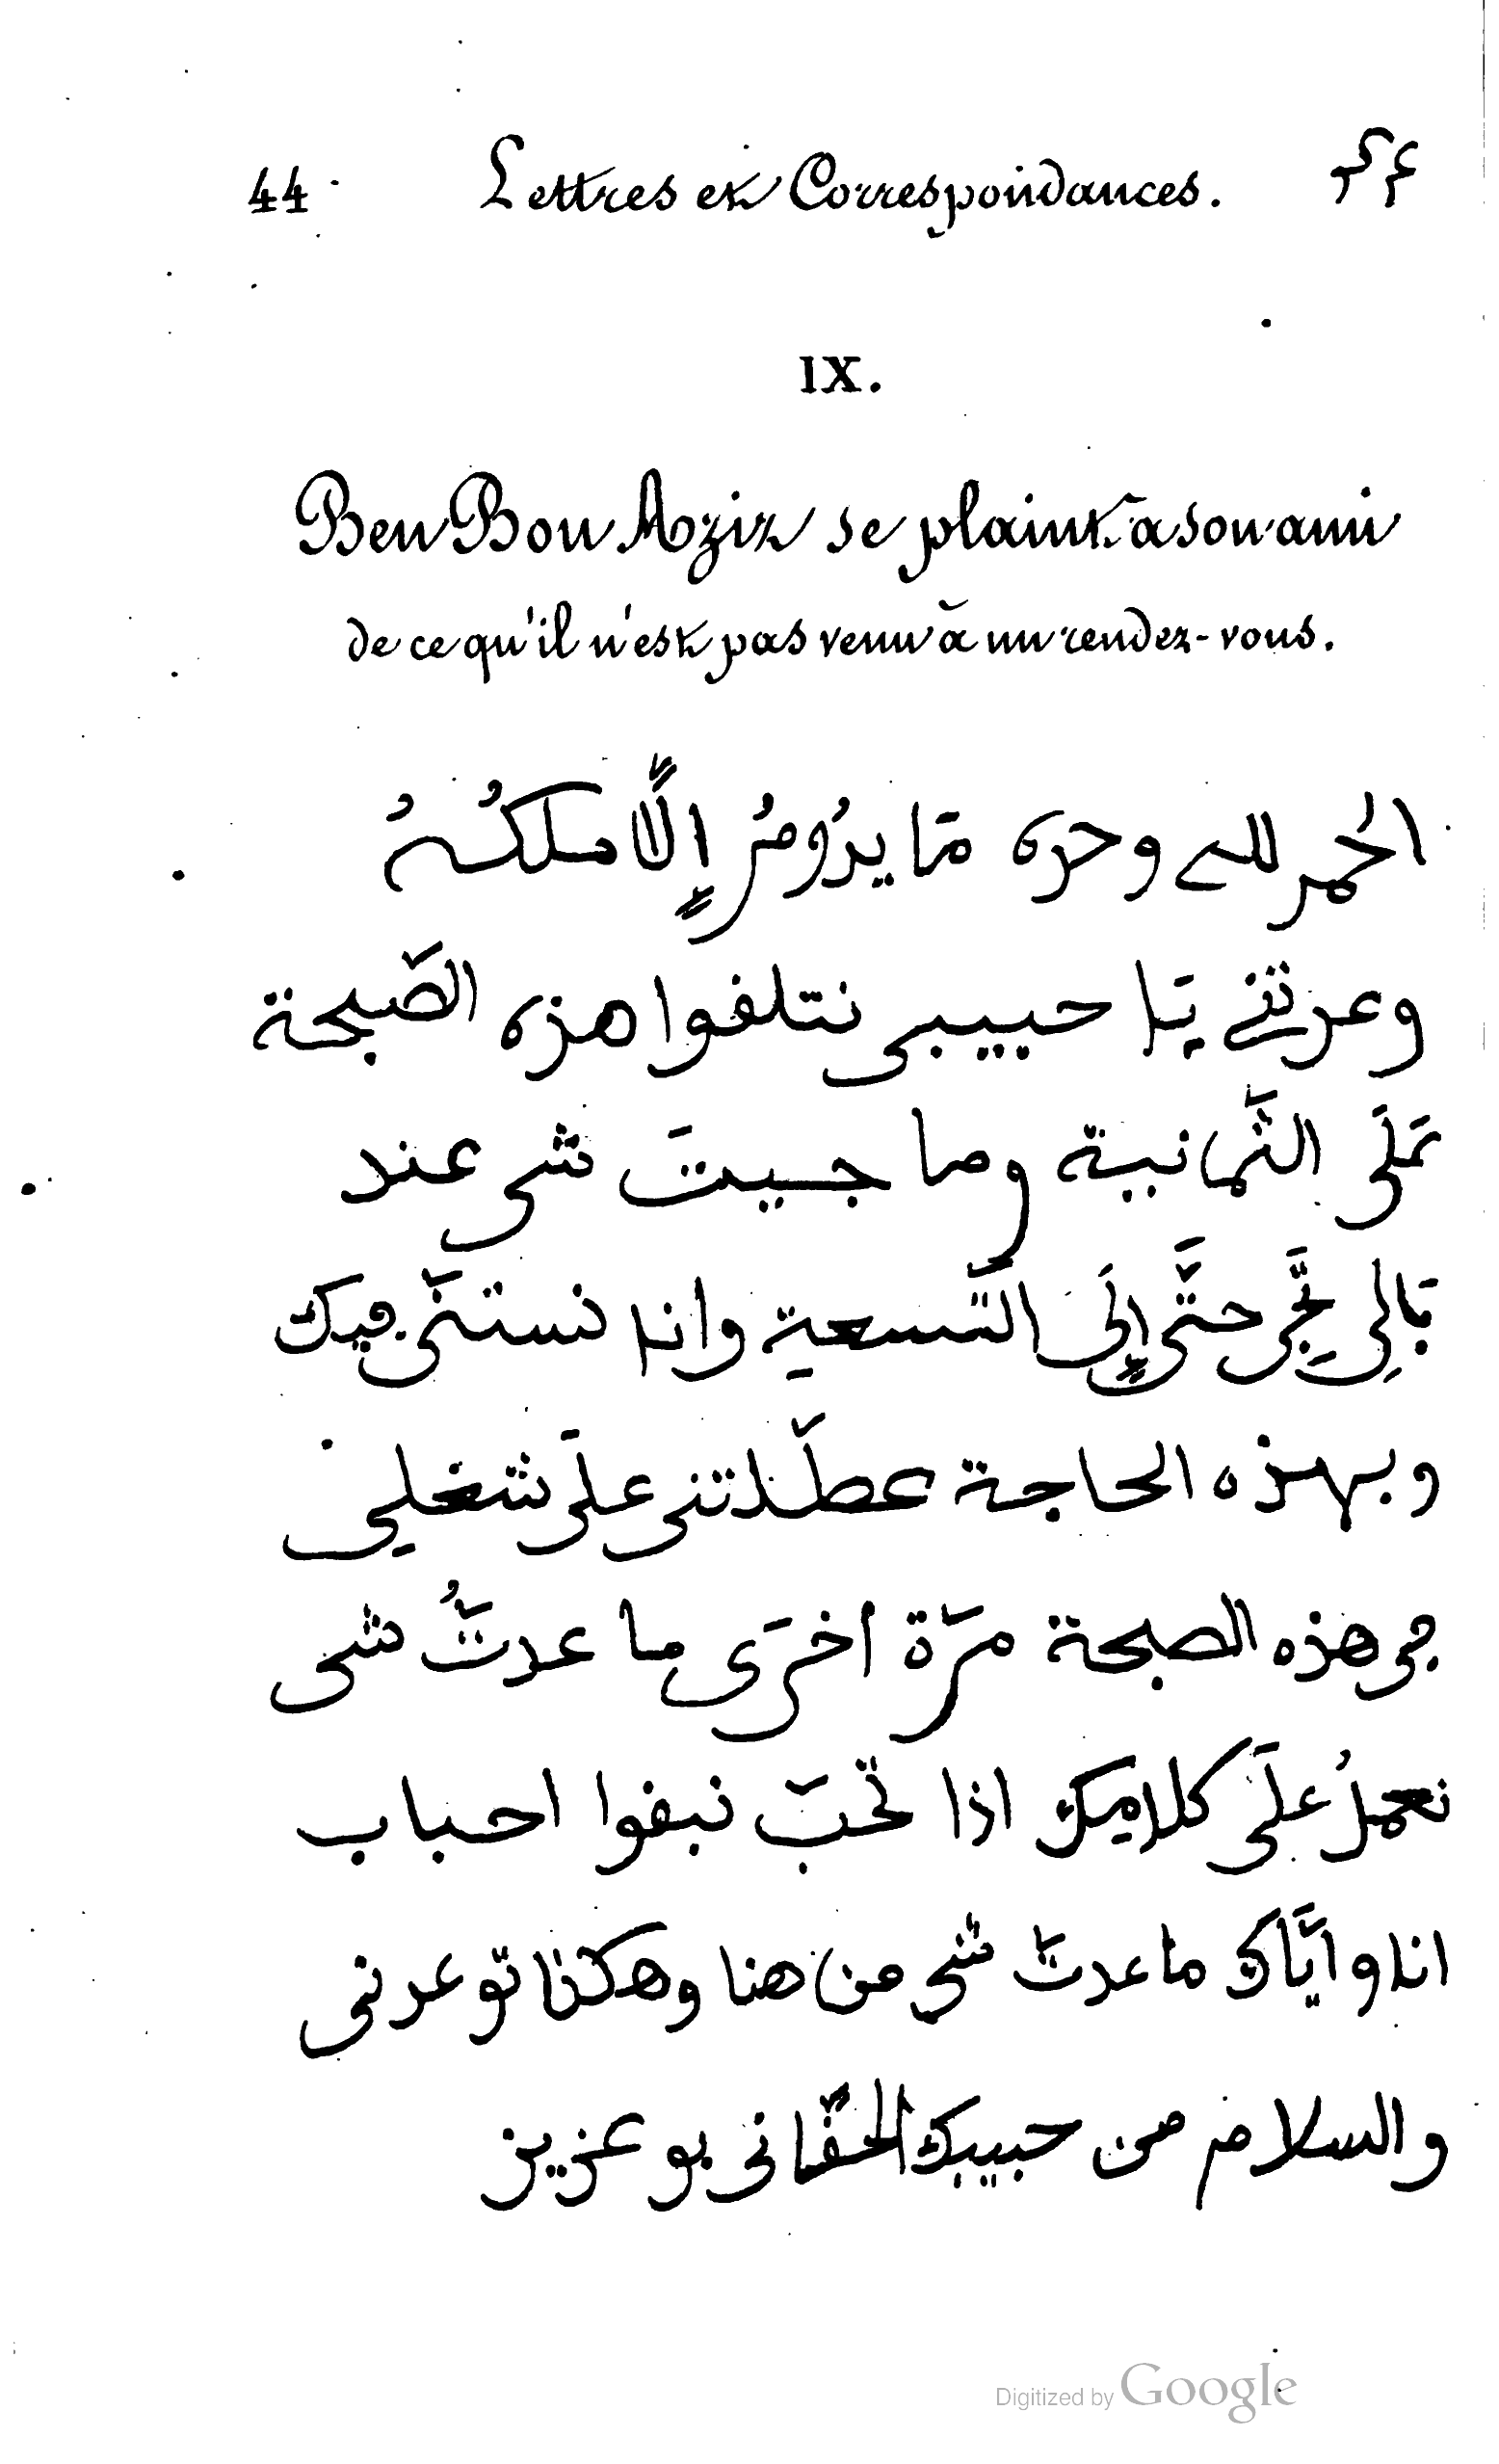 44 Lettres et Correspondances. ۴۴
IX.
Ben Bou Aziz se plaint à son ami
de ce qu'il n'est pas venu à un rendez-vous.
الحمد لله وحده مَا يدُومُ إِلَّا ملكُهُ
وعدتني يَا حبيبي نتلفوا هذه الصّبحة
عَلَى الثَّمانية وما جيتَ شي عند
بَالِي تجِي حتَّى إِلَى التّسعة وانا نستنّى ڢيك
وبهذه الحاجة عطّلتني علَى شغلي
ڢي هذه الصبحة مرّة اخرَى ما عدتُّ شي
نعملُ علَى كلامك اذا تحَبّ نبفوا احباب
انا وايَّاك ما عدتّ شي من هنا وهكذا توعدني
والسلام من حبيبك الحفّاني بو عزيز
Digitized by Google